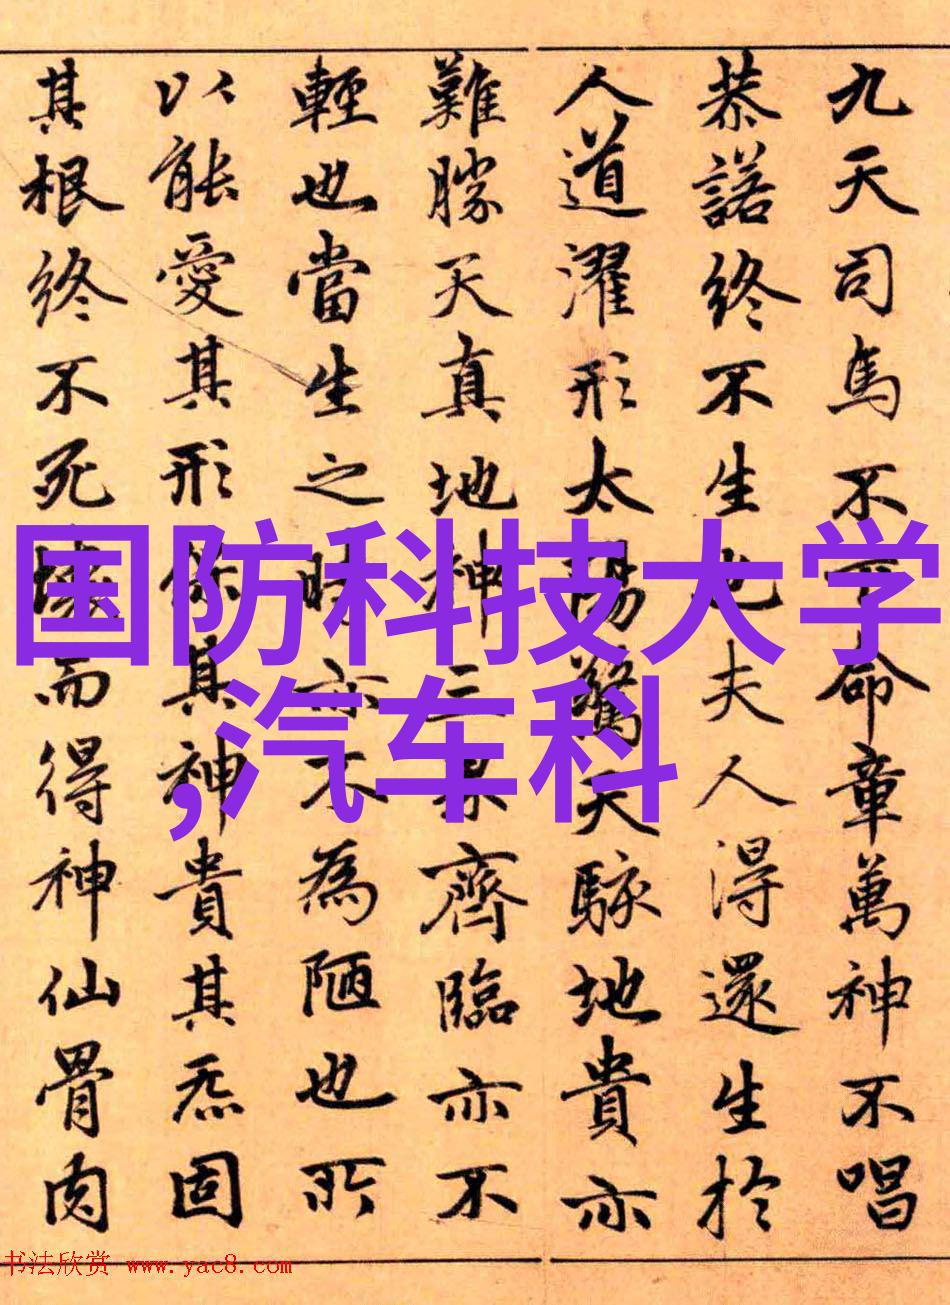 九天司馬不下命章萬神不唱
恭諾終不生也夫人得還生於
人道濯形太陽驚天駭地貴亦
難勝天真地神三界齊臨亦不
輕也當生之時亦不為陋也所
以能愛其形保其神貴其炁固
其根終不死壞而得神仙骨肉
国防科技大学
,汽车科
书法欣赏 www.yac8.com